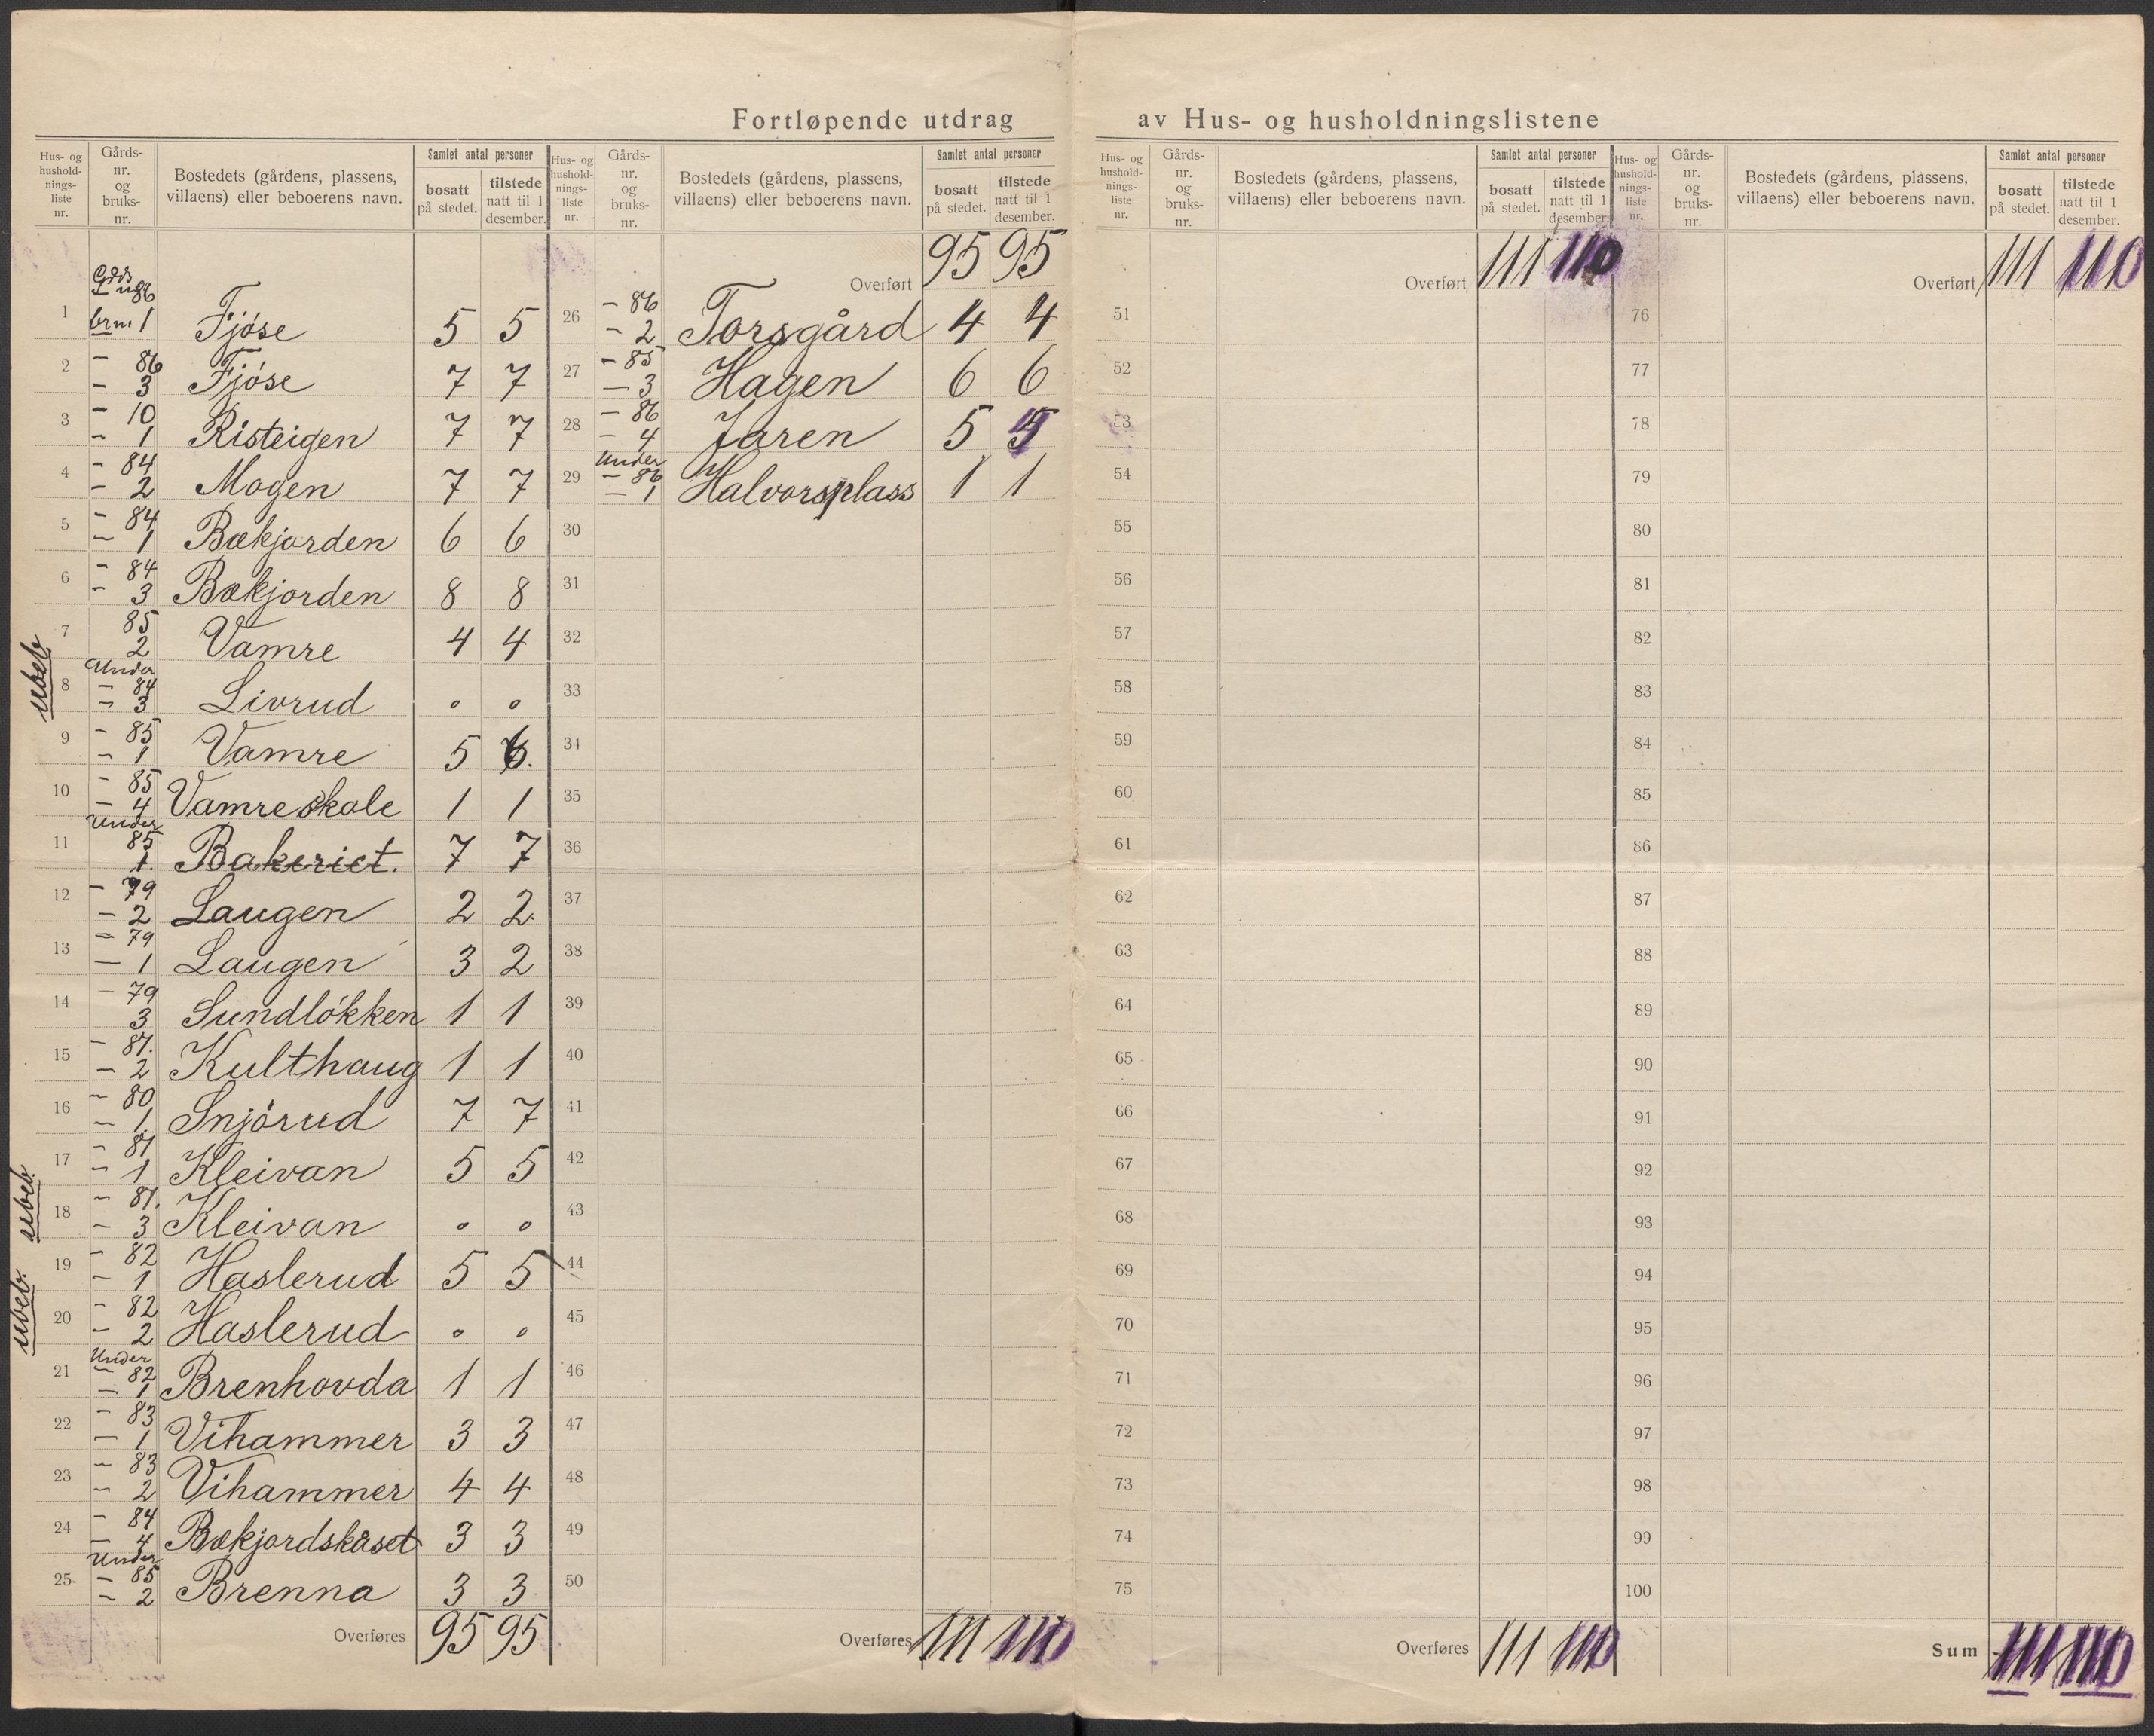 Fortløpende utdrag av Hus- og husholdningslistene
Hus- og husholdnings-liste nr. Gårds-nr. og bruks-nr. Bostedets (gårdens, plassens, villaens) eller beboerens navn. Samlet antal personer bosatt på stedet. tilstede natt til 1 desember.
1 Gdds nr 86 brn. 1 Fjöse 5 5
2 – 86 – 3 Fjöse 7 7
3 – 10 – 1 Risteigen 7 7
4 – 84 – 2 Mogen 7 7
5 – 84 – 1 Bækjorden 6 6
6 – 84 – 3 Bækjorden 8 8
7 85 2 Vamre 4 4
ubeb. 8 Under – 84 – 3 Livrud 0 0
9 – 85 – 1 Vamre 5 6.
10 – 85 – 4 Vamre skole 1 1
11 Under 85 1. Bakeriet. 7 7
12 – 79 – 2 Laugen 2 2
13 – 79 – 1 Laugen 3 2
14 – 79 3 Sundlökken 1 1
15 – 87. – 2 Kulthaug 1 1
16 – 80 – 1. Snjörud 7 7
17 – 81 – 1 Kleivan 5 5
ubeb. 18 – 81. – 3 Kleivan 0 0
19 – 82 – 1 Haslerud 5 5
ubeb. 20 – 82 – 2 Haslerud 0 0
21 Under – 82 – 1 Brenhovda 1 1
22 – 83 – 1 Vihammer 3 3
23 – 83 – 2 Vihammer 4 4
24 – 84 – 4 Bækjordskåset 3 3
25 Under – 85 – 2 Brenna 3 3
Overføres 95 95
Hus- og husholdnings-liste nr. Gårds-nr. og bruks-nr. Bostedets (gårdens, plassens, villaens) eller beboerens navn. Samlet antal personer bosatt på stedet. tilstede natt til 1 desember.
Overført 95 95
26 – 86 – 2 Torsgård 4 4
27 – 85 – 3 Hagen 6 6
28 – 86 – 4 Jaren 5 4
29 Under – 86 – 1 Halvorsplass 1 1
30
31
32
33
34
35
36
37
38
39
40
41
42
43
44
45
46
47
48
49
50
Overføres 111 110
Hus- og husholdnings-liste nr. Gårds-nr. og bruks-nr. Bostedets (gårdens, plassens, villaens) eller beboerens navn. Samlet antal personer bosatt på stedet. tilstede natt til 1 desember.
Overført 111 110
51
52
53
54
55
56
57
58
59
60
61
62
63
64
65
66
67
68
69
70
71
72
73
74
75
Overføres 111 110
Hus- og husholdnings-liste nr. Gårds-nr. og bruks-nr. Bostedets (gårdens, plassens, villaens) eller beboerens navn. Samlet antal personer bosatt på stedet. tilstede natt til 1 desember.
Overført 111 110
76
77
78
79
80
81
82
83
84
85
86
87
88
89
90
91
92
93
94
95
96
97
98
99
100
Sum 111 110